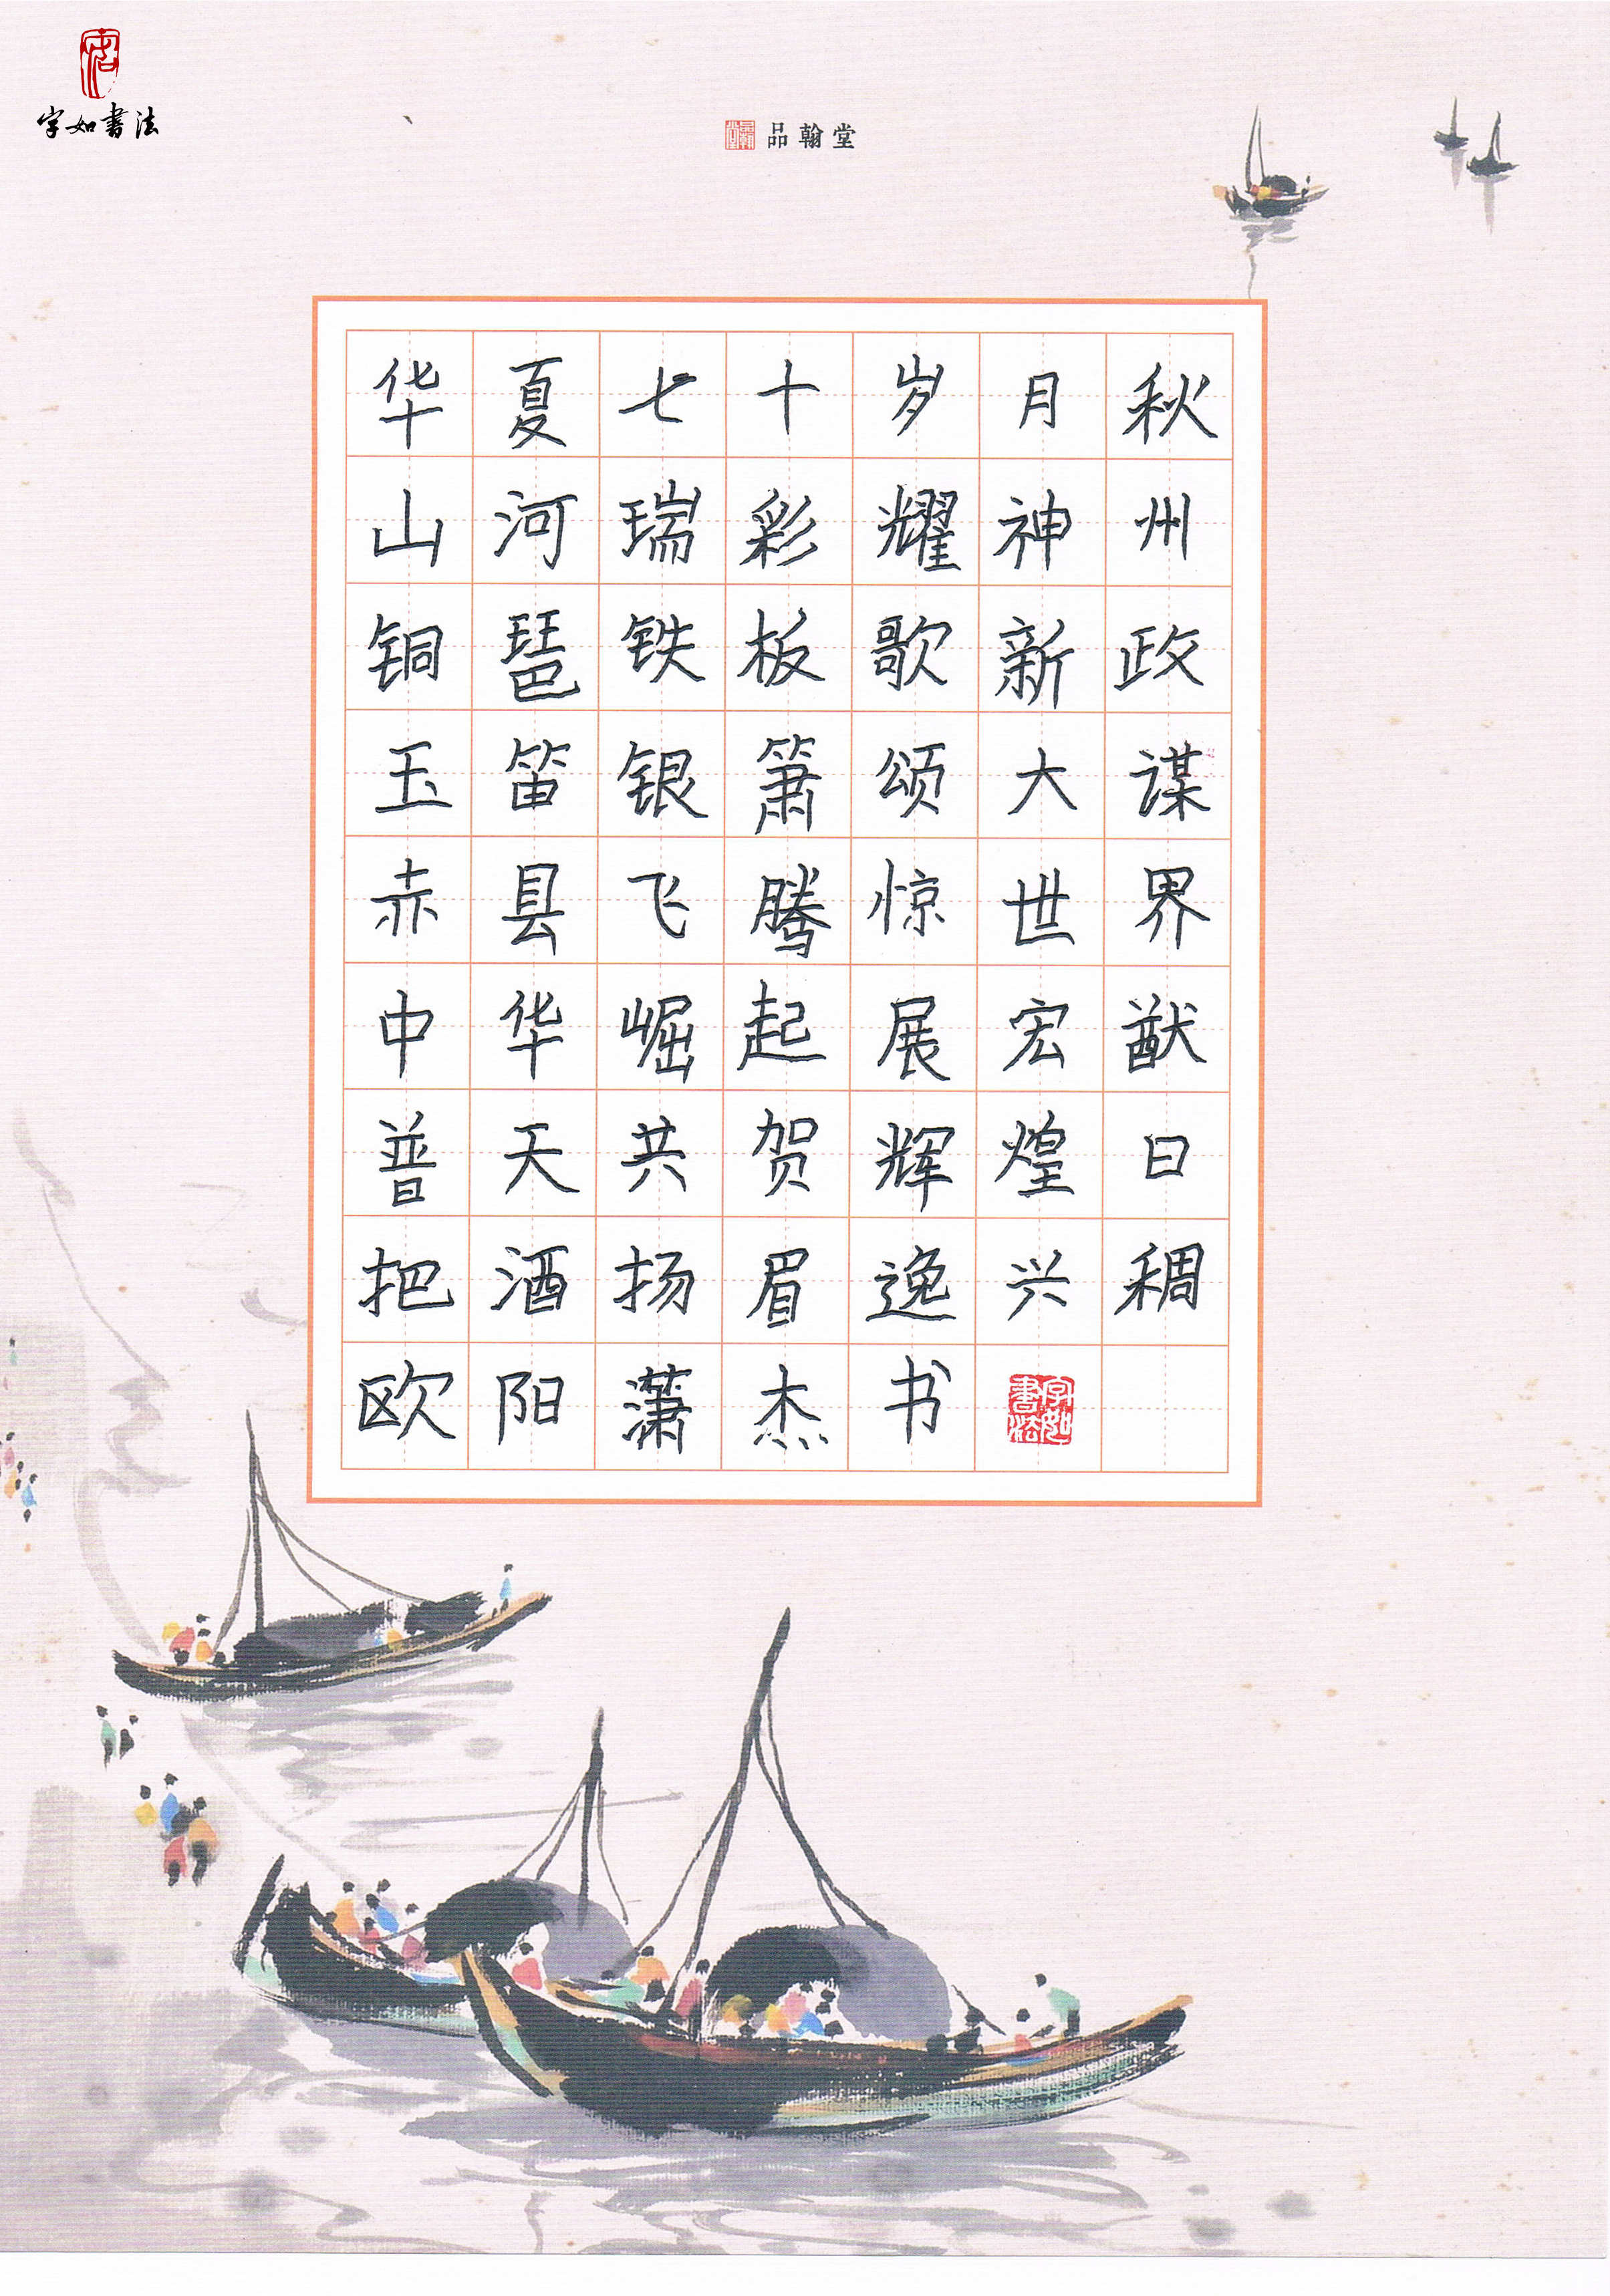 字如书法
品翰堂
华夏七十岁月秋
山河瑞彩耀神州
铜琶铁板歌新政
玉笛银箫颂大谋
赤县飞腾惊世界
中华崛起展宏猷
普天共贺辉煌日
把酒扬眉逸兴稠
欧阳潇杰书
字如書法